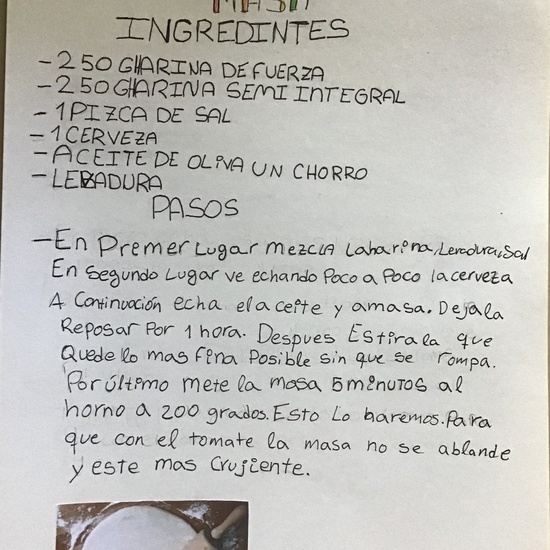 MASA
INGREDINTES
-250 G HARINA DE FUERZA
-250 G HARINA SEMI INTEGRAL
-1 PIZCA DE SAL
-1 CERVEZA
-ACEITE DE OLIVA UN CHORRO
-LEVADURA
PASOS
-En Premer Lugar mezcla la harina, Levadura, Sal
En Segundo Lugar ve echando Poco a Poco la cerveza
A Continuación echa el aceite y amasa. Dejala
Reposar Por 1 hora. Despues Estirala que
Quede lo mas fina Posible sin que se rompa.
Por último mete la masa 5 minutos al
horno a 200 grados. Esto Lo haremos. Para
que con el tomate la masa no se ablande
y este mas Crujiente.